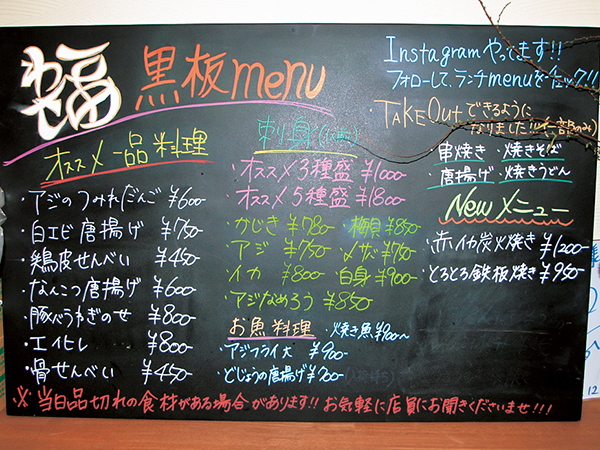 福 黒板menu
Instagramやってます!!
フォローして、ランチmenuをチェック!!
TAKE Outできるように
なりました!!(一部のみ)
串焼き ・焼きそば
・唐揚げ ・焼きうどん
オススメ一品料理
・アジのつみれだんご ¥600
・白エビ唐揚げ ¥750
・鶏皮せんべい ¥450
・なんこつ唐揚げ ¥600
・豚バラねぎのせ ¥800
・エイヒレ ¥800
・骨せんべい ¥450
刺り身
・オススメ3種盛 ¥1000
・オススメ5種盛 ¥1800
・かじき ¥780 ・梅貝 ¥850
・アジ ¥750 ・〆サバ ¥750
・イカ ¥800 ・白身 ¥900
・アジなめろう ¥850
お魚料理 ・焼き魚 ¥900〜
・アジフライ大 ¥900
・どじょうの唐揚げ ¥900
Newメニュー
・赤イカ炭火焼き ¥1200
・とろとろ鉄板焼き ¥950
※当日品切れの食材がある場合があります!!お気軽に店員にお聞きくださいませ!!!
12